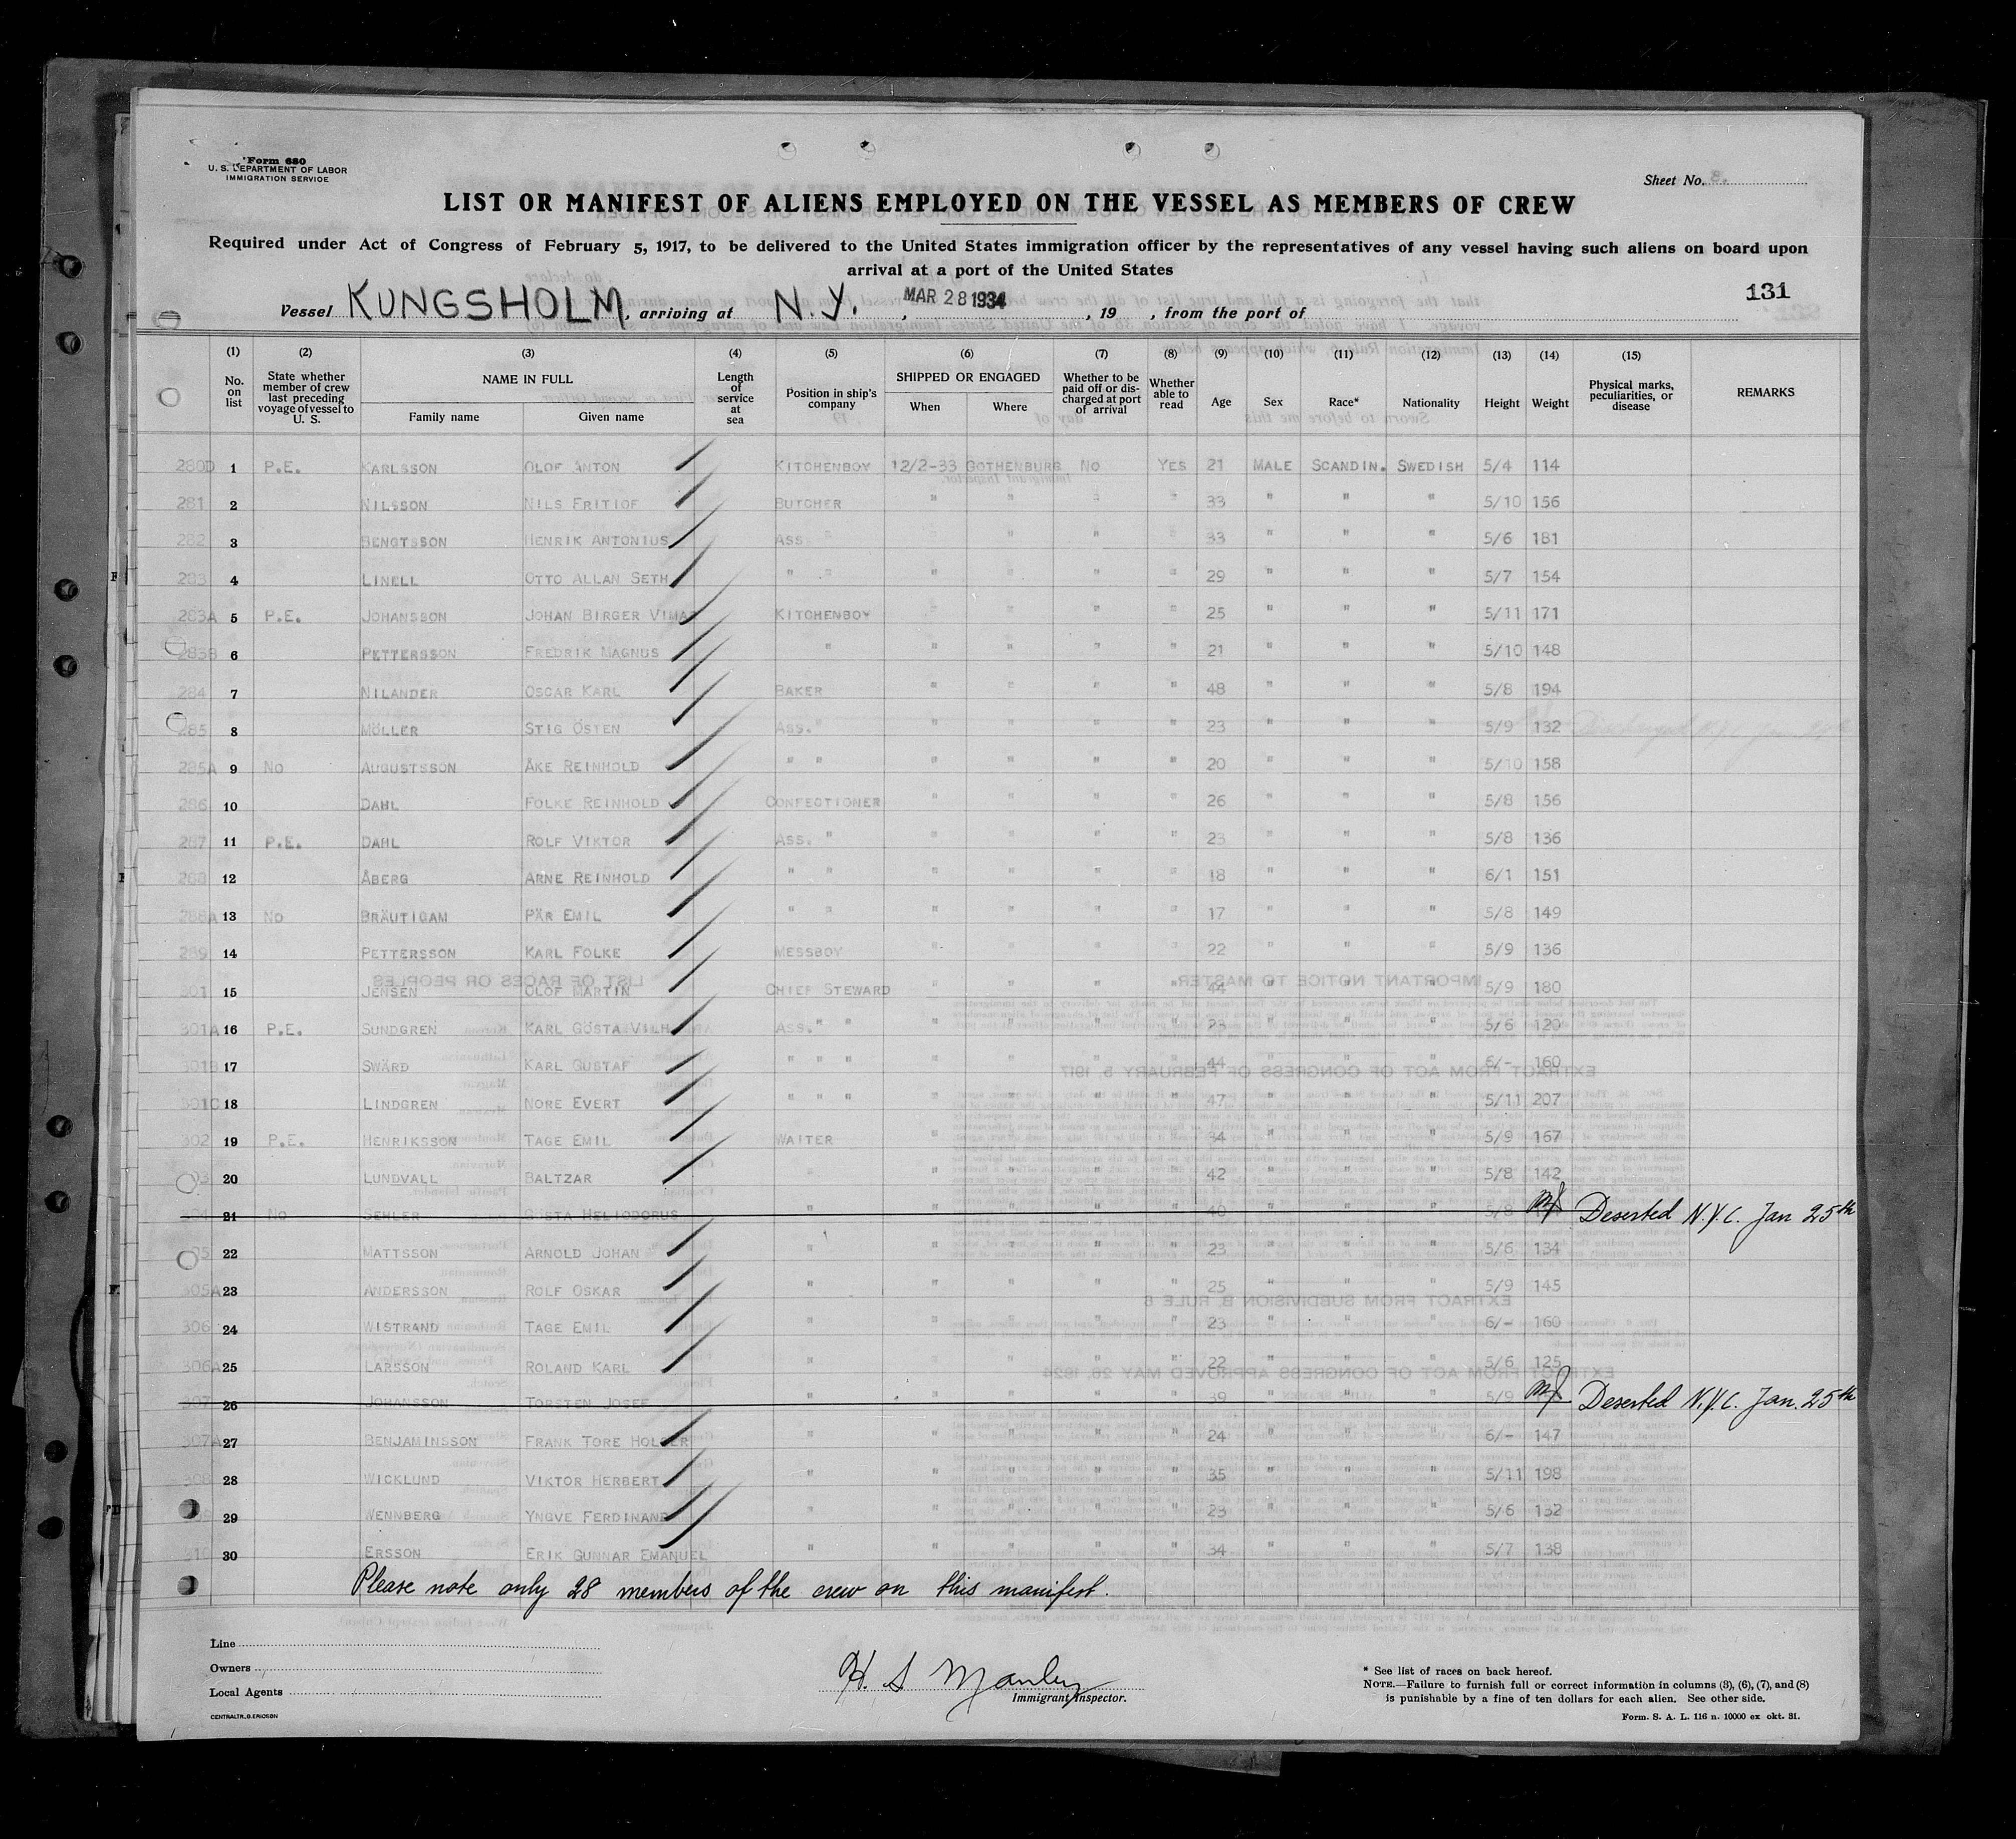 Form 680
U. S. DEPARTMENT OF LABOR
IMMIGRATION SERVICE
Sheet No. 8.
LIST OR MANIFEST OF ALIENS EMPLOYED ON THE VESSEL AS MEMBERS OF CREW
Required under Act of Congress of February 5, 1917, to be delivered to the United States immigration officer by the representatives of any vessel having such aliens on board upon
arrival at a port of the United States
131
Vessel KUNGSHOLM, arriving at N.Y. , MAR 28 1934 , 19 , from the port of
(1) (2) (3) (4) (5) (6) (7) (8) (9) (10) (11) (12) (13) (14) (15)
No. on list State whether member of crew last preceding voyage of vessel to U. S. NAME IN FULL Family name Given name Length of service at sea Position in ship's company SHIPPED OR ENGAGED When Where Whether to be paid off or discharged at port of arrival Whether able to read Age Sex Race* Nationality Height Weight Physical marks, peculiarities, or disease REMARKS
280D 1 P.E. KARLSSON OLOF ANTON KITCHENBOY 12/2-33 GOTHENBURG NO YES 21 MALE SCANDIN. SWEDISH 5/4 114
281 2 NILSSON NILS FRITIOF BUTCHER " " " " 33 " " " 5/10 156
282 3 BENGTSSON HENRIK ANTONIUS ASS. " " " " " 33 " " " 5/6 181
283 4 LINELL OTTO ALLAN SETH " " " " " " 29 " " " 5/7 154
283A 5 P.E. JOHANSSON JOHAN BIRGER VIMAR KITCHENBOY " " " " 25 " " " 5/11 171
283B 6 PETTERSSON FREDRIK MAGNUS " " " " " 21 " " " 5/10 148
284 7 NILANDER OSCAR KARL BAKER " " " " 48 " " " 5/8 194
285 8 MÖLLER STIG ÖSTEN ASS. " " " " " 23 " " " 5/9 132
285A 9 NO AUGUSTSSON ÅKE REINHOLD " " " " " " 20 " " " 5/10 158
286 10 DAHL FOLKE REINHOLD CONFECTIONER " " " " 26 " " " 5/8 156
287 11 P.E. DAHL ROLF VIKTOR ASS. " " " " " 23 " " " 5/8 136
288 12 ÅBERG ARNE REINHOLD " " " " " " 18 " " " 6/1 151
288A 13 NO BRÄUTIGAM PÄR EMIL " " " " " " 17 " " " 5/8 149
289 14 PETTERSSON KARL FOLKE MESSBOY " " " " 22 " " " 5/9 136
301 15 JENSEN OLOF MARTIN CHIEF STEWARD " " " " 44 " " " 5/9 180
301A 16 P.E. SUNDGREN KARL GÖSTA VILH ASS. " " " " " " 23 " " " 5/6 120
301B 17 SWÄRD KARL GUSTAF " " " " " " " 44 " " " 6/- 160
301C 18 LINDGREN NORE EVERT " " " " " " " 47 " " " 5/11 207
302 19 P.E. HENRIKSSON TAGE EMIL WAITER " " " " 34 " " " 5/9 167
303 20 LUNDVALL BALTZAR " " " " " 42 " " " 5/8 142
304 21 NO SEHLER GÖSTA HELIODORUS " " " " " 40 " " " 5/8 Deserted N.Y.C. Jan 25th
305 22 MATTSSON ARNOLD JOHAN " " " " " 23 " " " 5/6 134
305A 23 ANDERSSON ROLF OSKAR " " " " " 25 " " " 5/9 145
306 24 WISTRAND TAGE EMIL " " " " " 23 " " " 6/- 160
306A 25 LARSSON ROLAND KARL " " " " " 22 " " " 5/6 125
307 26 JOHANSSON TORSTEN JOSEF " " " " " 39 " " " 5/9 Deserted N.Y.C. Jan. 25th
307A 27 BENJAMINSSON FRANK TORE HOLGER " " " " " 24 " " " 6/- 147
308 28 WICKLUND VIKTOR HERBERT " " " " " 35 " " " 5/11 198
29 WENNBERG YNGVE FERDINAND " " " " " 23 " " " 5/6 132
310 30 ERSSON ERIK GUNNAR EMANUEL " " " " " 34 " " " 5/7 138
Please note only 28 members of the crew on this manifest.
Line
Owners
Local Agents
CENTRALTR., G. ERICSON
H. S Manley
Immigrant Inspector.
* See list of races on back hereof.
NOTE.—Failure to furnish full or correct information in columns (3), (6), (7), and (8)
is punishable by a fine of ten dollars for each alien. See other side.
Form. S. A. L. 116 n. 10000 ex okt. 31.